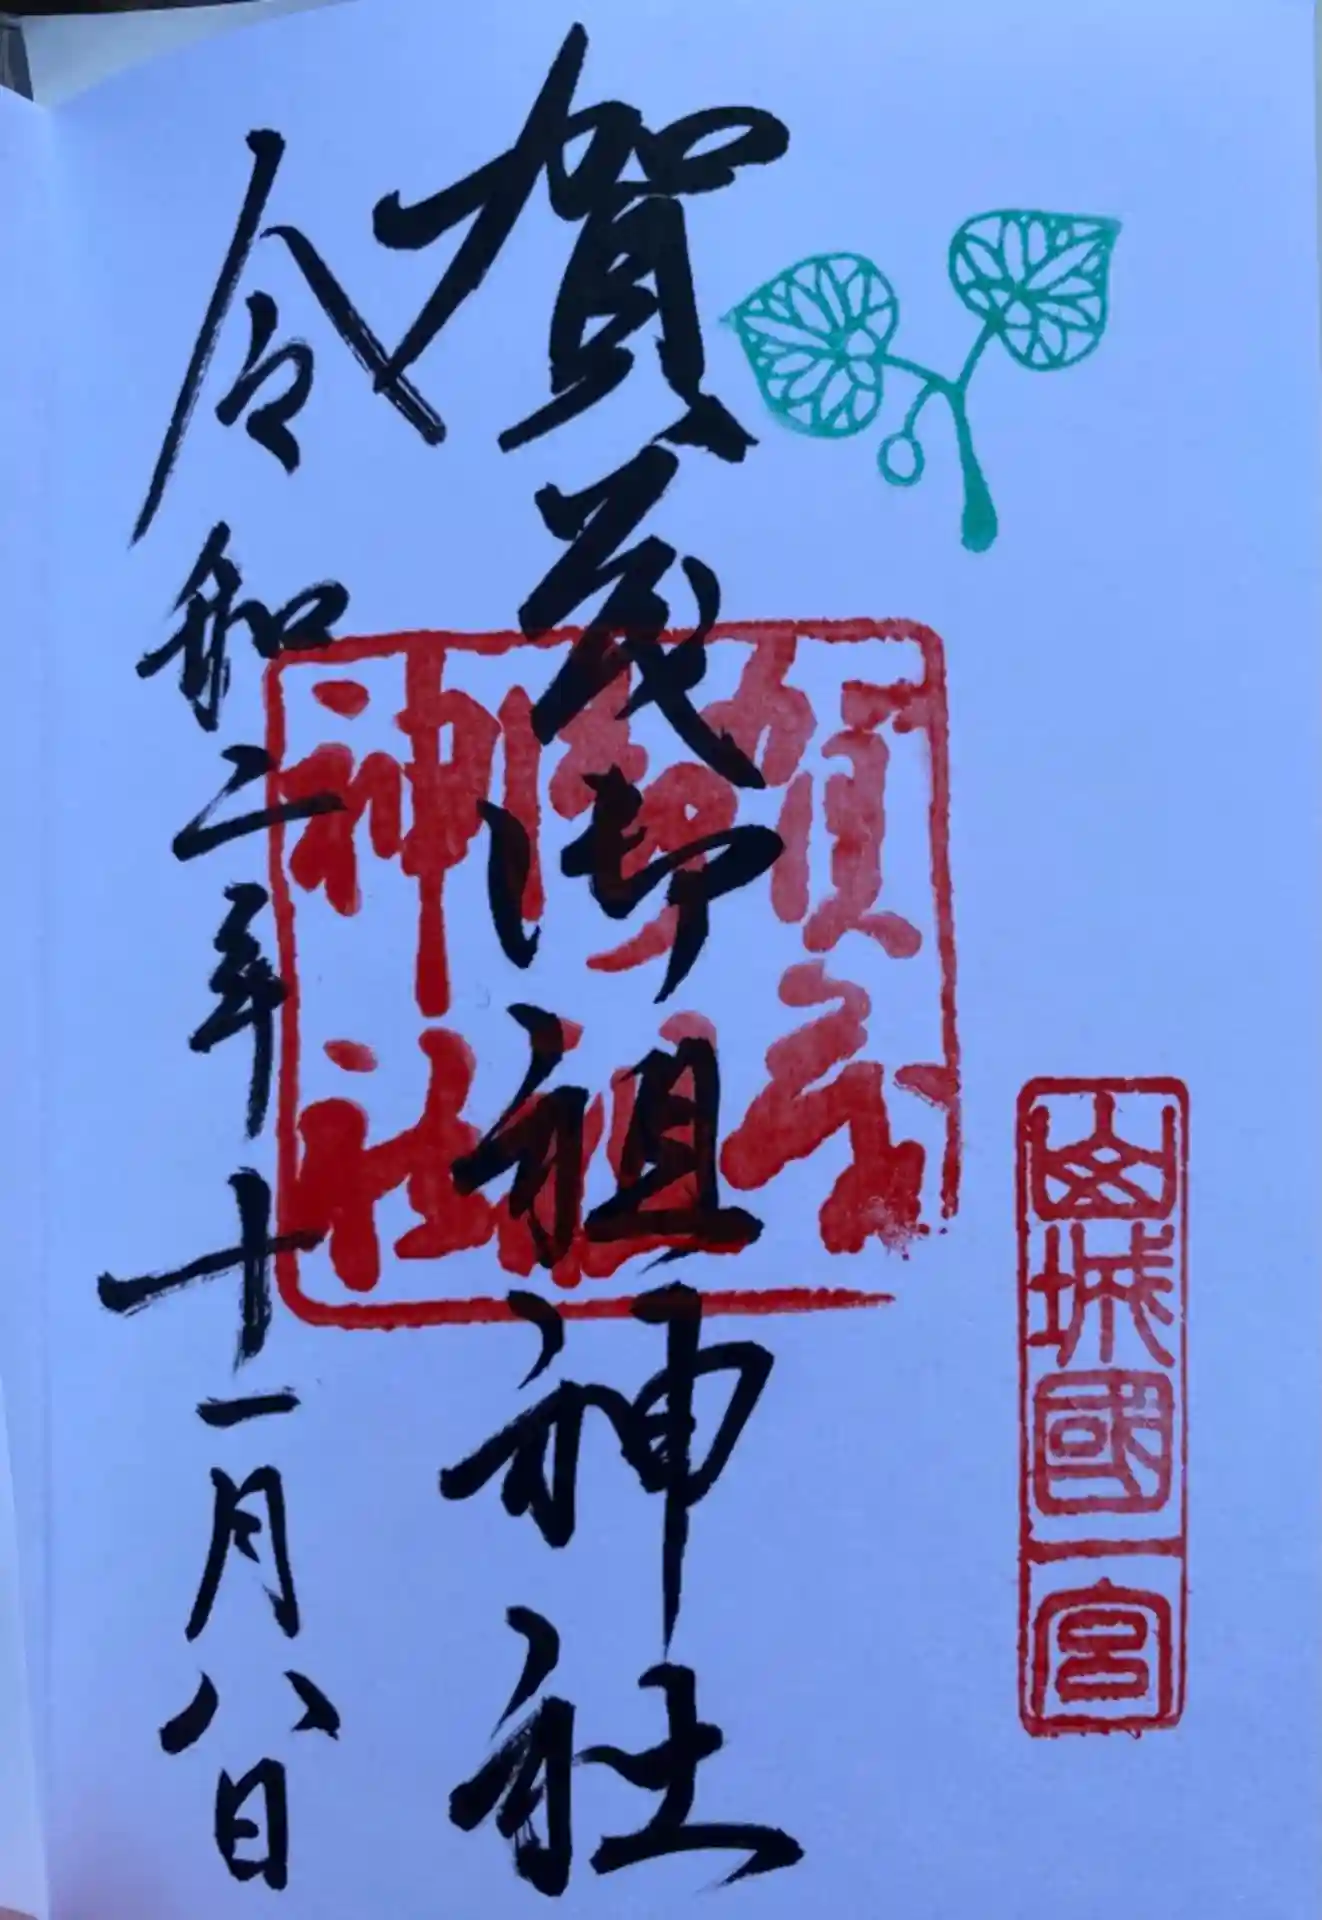 山城國一宮
賀茂御祖神社
賀茂
御祖
神社
令和二年十一月八日